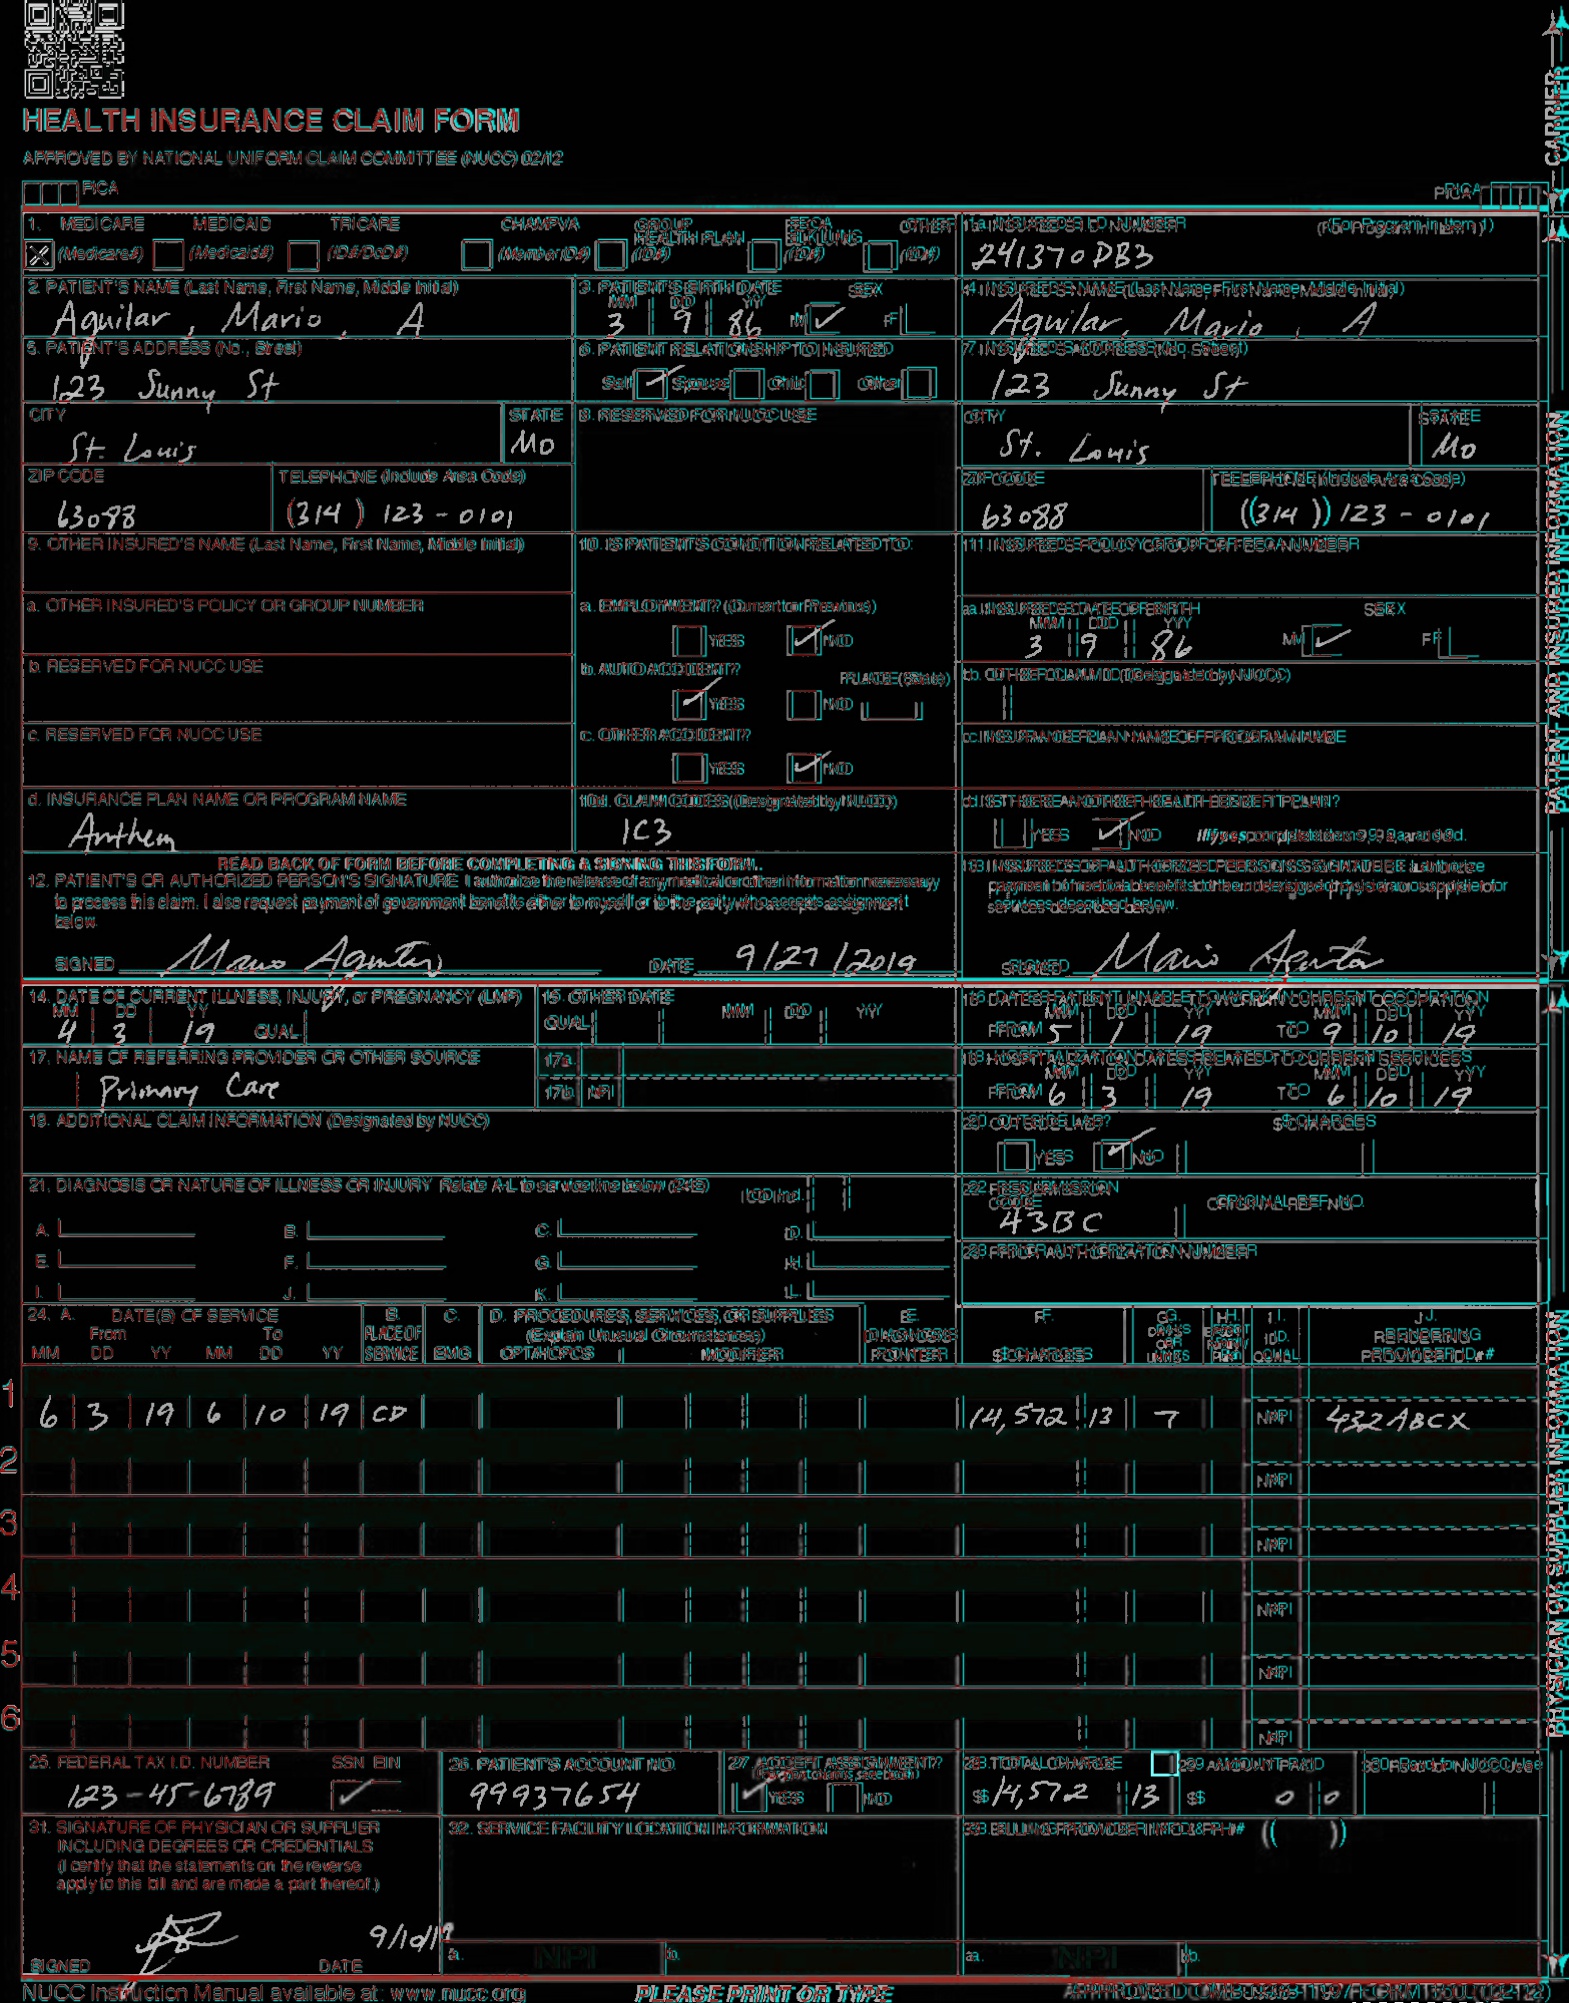 HEALTH INSURANCE CLAIM FORM
APPROVED BY NATIONAL UNIFORM CLAIM COMMITTEE (NUCC) 02/12
PICA
PICA
CARRIER
1. MEDICARE MEDICAID TRICARE CHAMPVA GROUP HEALTH PLAN FECA BLK LUNG OTHER
(Medicare#) (Medicaid#) (ID#/DoD#) (Member ID#) (ID#) (ID#) (ID#)
1a. INSURED'S I.D. NUMBER (For Program in Item 1)
241370PB3
2. PATIENT'S NAME (Last Name, First Name, Middle Initial)
Aguilar, Mario, A
3. PATIENT'S BIRTH DATE SEX
MM DD YY
3 9 86 M F
4. INSURED'S NAME (Last Name, First Name, Middle Initial)
Aguilar, Mario, A
5. PATIENT'S ADDRESS (No., Street)
123 Sunny St
6. PATIENT RELATIONSHIP TO INSURED
Self Spouse Child Other
7. INSURED'S ADDRESS (No., Street)
123 Sunny St
CITY
St. Louis
STATE
MO
8. RESERVED FOR NUCC USE
CITY
St. Louis
STATE
Mo
ZIP CODE
63088
TELEPHONE (Include Area Code)
(314) 123-0101
ZIP CODE
63088
TELEPHONE (Include Area Code)
(314) 123-0101
9. OTHER INSURED'S NAME (Last Name, First Name, Middle Initial)
10. IS PATIENT'S CONDITION RELATED TO:
11. INSURED'S POLICY GROUP OR FECA NUMBER
a. OTHER INSURED'S POLICY OR GROUP NUMBER
a. EMPLOYMENT? (Current or Previous)
YES NO
a. INSURED'S DATE OF BIRTH SEX
MM DD YY
3 9 86 M F
b. RESERVED FOR NUCC USE
b. AUTO ACCIDENT? PLACE (State)
YES NO
b. OTHER CLAIM ID (Designated by NUCC)
c. RESERVED FOR NUCC USE
c. OTHER ACCIDENT?
YES NO
c. INSURANCE PLAN NAME OR PROGRAM NAME
d. INSURANCE PLAN NAME OR PROGRAM NAME
Anthem
10d. CLAIM CODES (Designated by NUCC)
1C3
d. IS THERE ANOTHER HEALTH BENEFIT PLAN?
YES NO If yes, complete items 9, 9a, and 9d.
PATIENT AND INSURED INFORMATION
READ BACK OF FORM BEFORE COMPLETING & SIGNING THIS FORM.
12. PATIENT'S OR AUTHORIZED PERSON'S SIGNATURE I authorize the release of any medical or other information necessary
to process this claim. I also request payment of government benefits either to myself or to the party who accepts assignment
below.
SIGNED DATE 9/27/2019
13. INSURED'S OR AUTHORIZED PERSON'S SIGNATURE I authorize
payment of medical benefits to the undersigned physician or supplier for
services described below.
SIGNED
14. DATE OF CURRENT ILLNESS, INJURY, or PREGNANCY (LMP)
MM DD YY
4 3 19 QUAL
15. OTHER DATE
QUAL MM DD YY
16. DATES PATIENT UNABLE TO WORK IN CURRENT OCCUPATION
MM DD YY MM DD YY
FROM 5 1 19 TO 9 10 19
17. NAME OF REFERRING PROVIDER OR OTHER SOURCE
Primary Care
17a.
17b. NPI
18. HOSPITALIZATION DATES RELATED TO CURRENT SERVICES
MM DD YY MM DD YY
FROM 6 3 19 TO 6 10 19
19. ADDITIONAL CLAIM INFORMATION (Designated by NUCC)
20. OUTSIDE LAB? $ CHARGES
YES NO
21. DIAGNOSIS OR NATURE OF ILLNESS OR INJURY Relate A-L to service line below (24E) ICD Ind.
A. B. C. D.
E. F. G. H.
I. J. K. L.
22. RESUBMISSION CODE ORIGINAL REF. NO.
43BC
23. PRIOR AUTHORIZATION NUMBER
24. A. DATE(S) OF SERVICE
From To
MM DD YY MM DD YY
B. PLACE OF SERVICE
C. EMG
D. PROCEDURES, SERVICES, OR SUPPLIES
(Explain Unusual Circumstances)
CPT/HCPCS MODIFIER
E. DIAGNOSIS POINTER
F. $ CHARGES
G. DAYS OR UNITS
H. EPSDT Family Plan
I. ID. QUAL.
J. RENDERING PROVIDER ID. #
1
6 3 19 6 10 19 CD 14,572 13 7 NPI 432ABCX
2
NPI
3
NPI
4
NPI
5
NPI
6
NPI
PHYSICIAN OR SUPPLIER INFORMATION
25. FEDERAL TAX I.D. NUMBER SSN EIN
123-45-6789
26. PATIENT'S ACCOUNT NO.
99937654
27. ACCEPT ASSIGNMENT?
(For govt. claims, see back)
YES NO
28. TOTAL CHARGE
$ 14,572 13
29. AMOUNT PAID
$ 0 0
30. Rsvd for NUCC Use
31. SIGNATURE OF PHYSICIAN OR SUPPLIER
INCLUDING DEGREES OR CREDENTIALS
(I certify that the statements on the reverse
apply to this bill and are made a part thereof.)
9/10/19
SIGNED DATE
32. SERVICE FACILITY LOCATION INFORMATION
a. NPI b.
33. BILLING PROVIDER INFO & PH # ( )
a. NPI b.
NUCC Instruction Manual available at: www.nucc.org
PLEASE PRINT OR TYPE